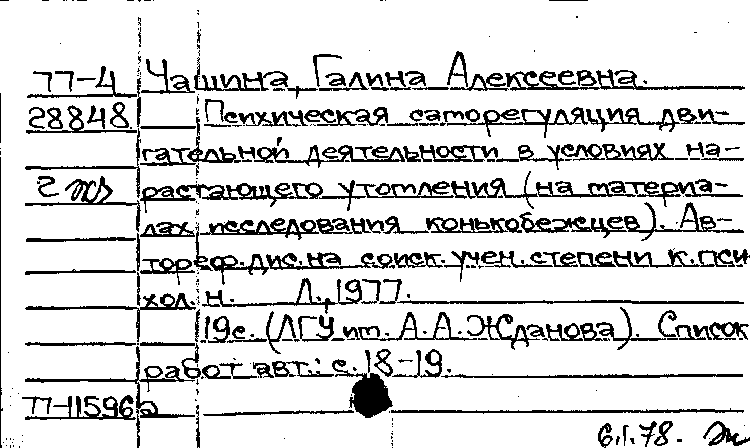 77-4 Чашина, Галина Алексеевна.
28848 Психическая саморегуляция дви-
гательной деятельности в условиях на-
2 растающего утомления (на материа-
лах исследования конькобежцев). Ав-
тореф.дис.на соиск.учен.степени к.пси
хол.н. Л.,1977.
19с.(ЛГУ им. А.А.Жданова). Список
работ авт.: с.18-19.
77-11596
6.I.78.